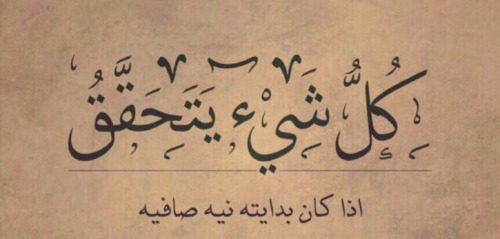 كُلُّ شَيْء يَتَحَقَّقُ
اذا كان بدايته نيه صافيه